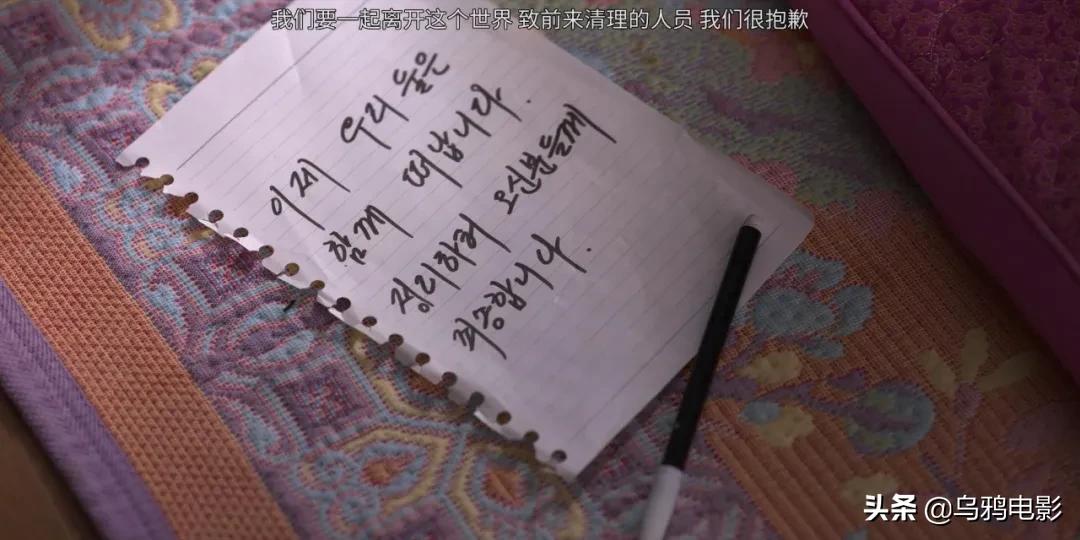 我们要一起离开这个世界 致前来清理的人员 我们很抱歉
이제 우리 둘은
함께 떠납니다.
정리하러 오신분들께
죄송합니다.
头条 @乌鸦电影